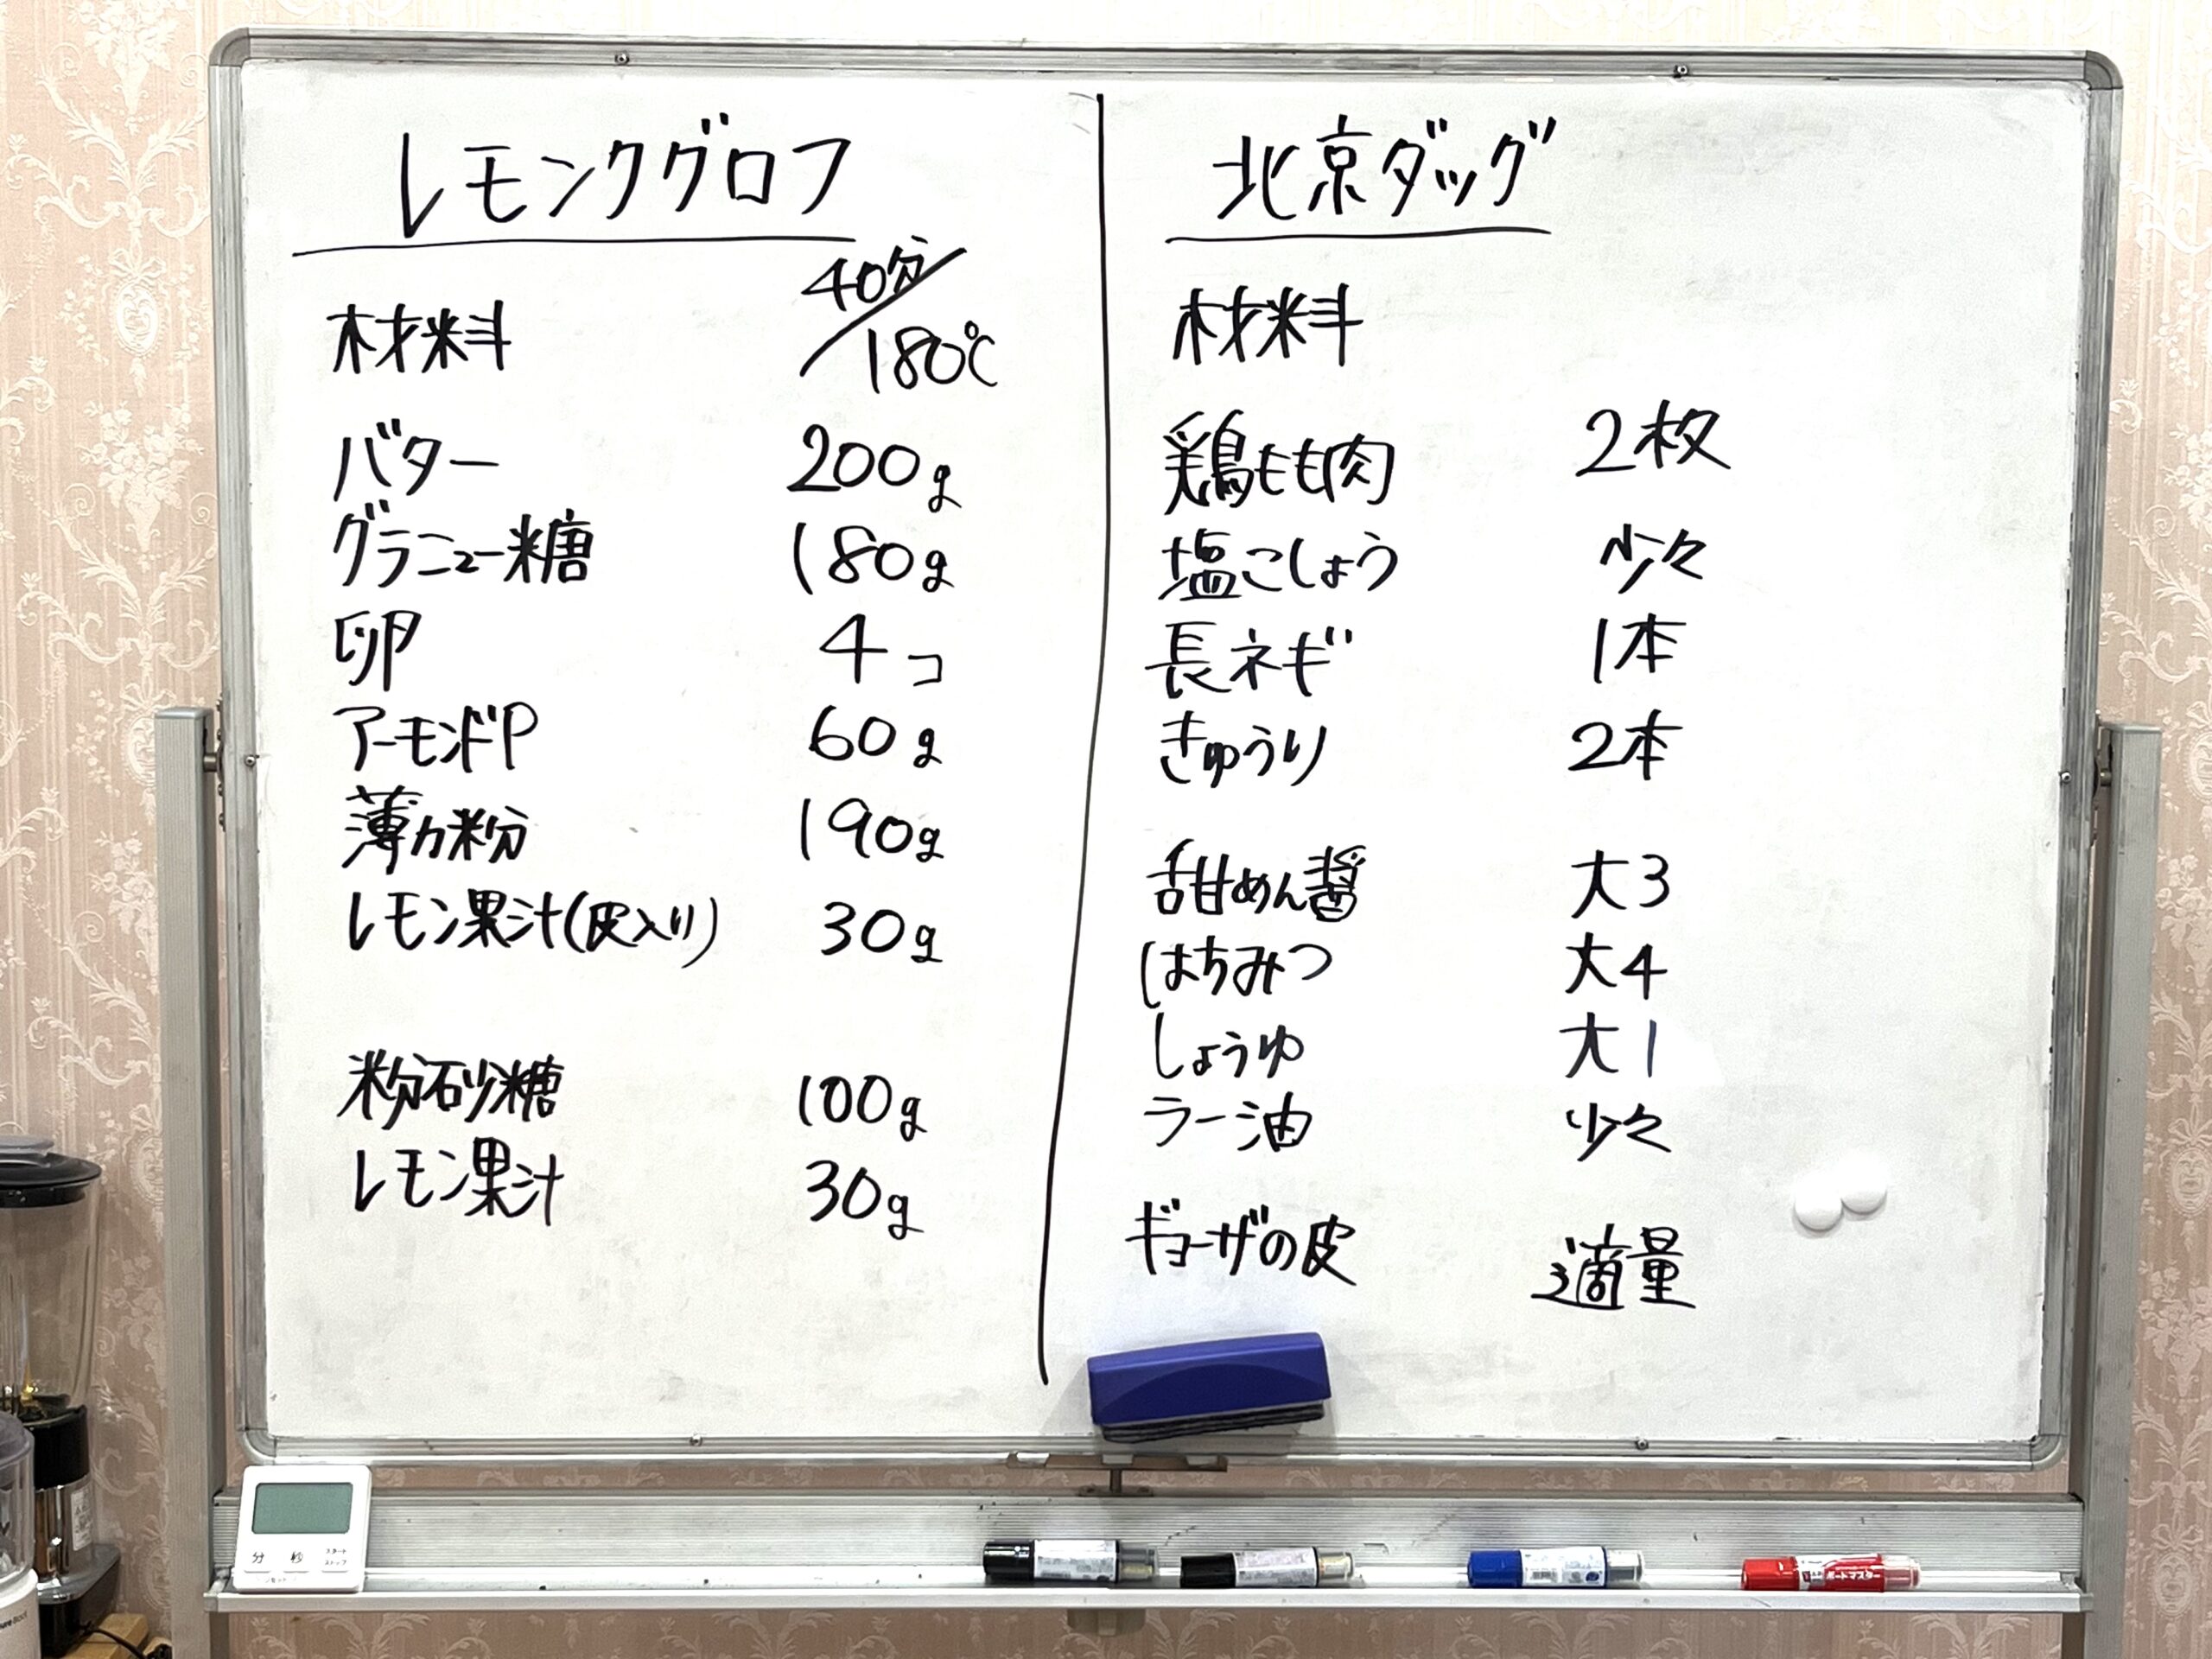 レモンクグロフ
40分/180℃
材料
バター 200g
グラニュー糖 180g
卵 4コ
アーモンドP 60g
薄力粉 190g
レモン果汁(皮入り) 30g
粉砂糖 100g
レモン果汁 30g
北京ダッグ
材料
鶏もも肉 2枚
塩こしょう 少々
長ネギ 1本
きゅうり 2本
甜めん醤 大3
はちみつ 大4
しょうゆ 大1
ラー油 少々
ギョーザの皮 適量
分 秒 スタート
ストップ
リセット
ボードマスター